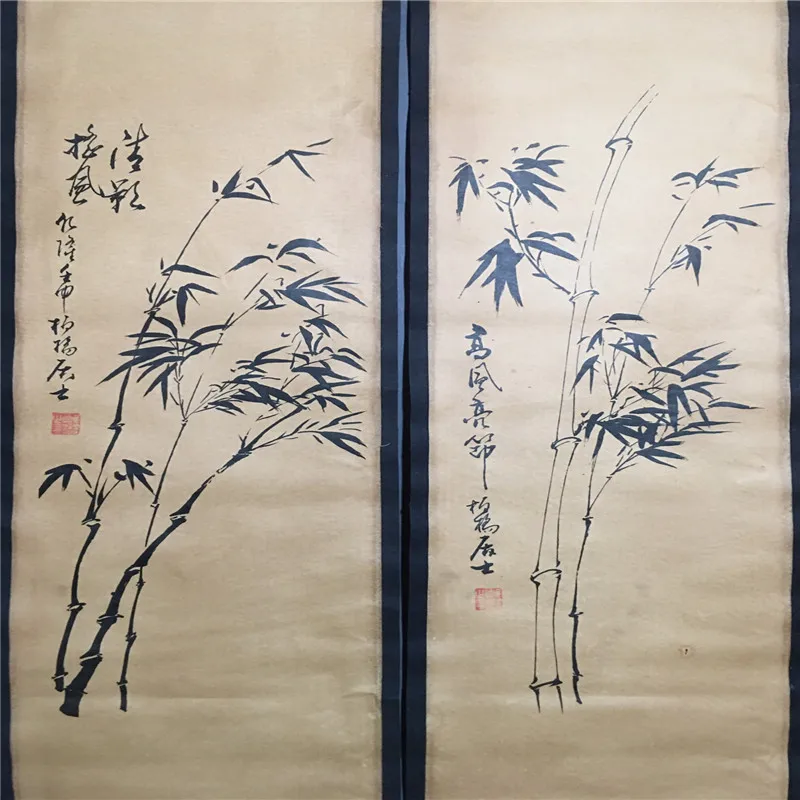 清影
搖風 乾隆壬申 板橋居士
高風亮節 板橋居士